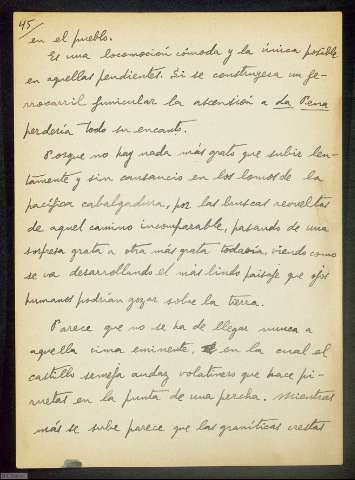 45
en el pueblo.
Es una locomoción cómoda y la única posible
en aquellas pendientes. Si se construyesa un fe-
rrocarril funicular la ascensión a da Pena
perdería todo su encanto.
Porque no hay nada más grato que subir len-
tamente y sin cansancio en los lomos de la
pacífica cabalgadura, por las buscas revueltas
de aquel camino incomparable, pasando de una
sorpresa grata a otra más grata todavía, viendo como
se va desarrollando el más lindo paisaje que ojos
humanos podrían gozar sobre la tierra.
Parece que no se ha de llegar nunca a
aquella cima eminente, en la cual el
castillo semeja audaz volatinero que hace pi-
ruetas en la punta de una percha. Mientras
más se sube parece que las graníticas crestas